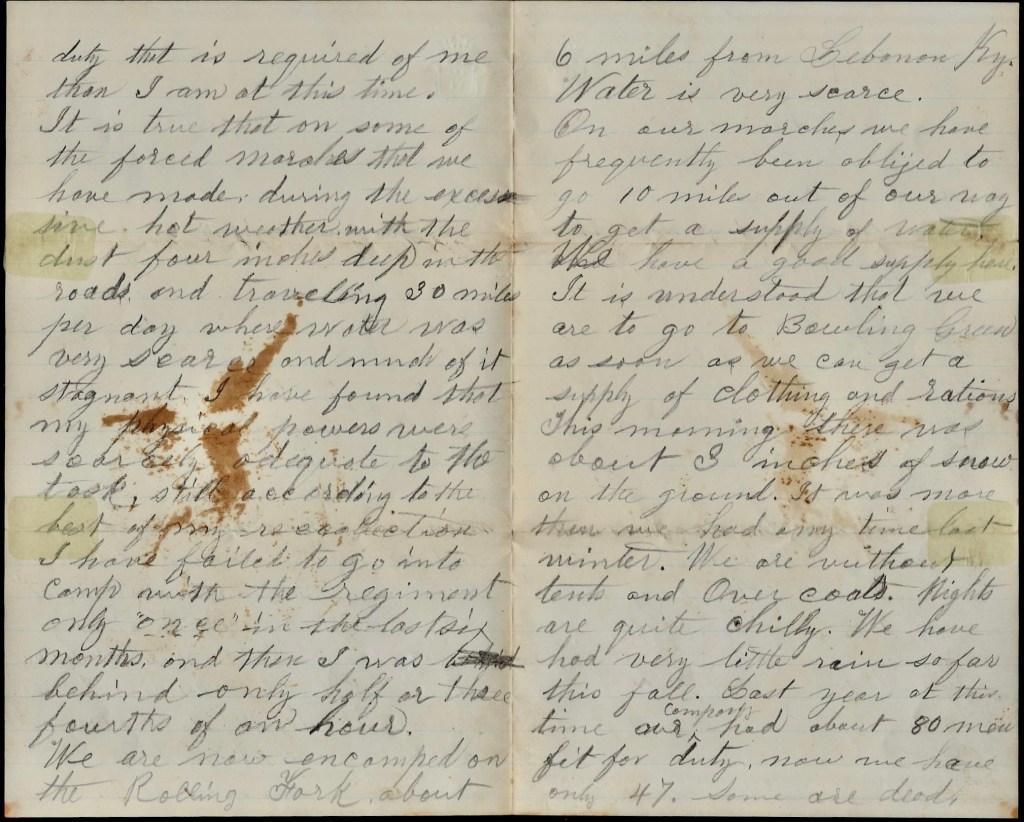 duty that is required of me
than I am at this time.
It is true that on some of
the forced marches that we
have made, during the exces
sive hot weather, with the
dust four inches deep in the
roads, and traveling 30 miles
per day where water was
very scarce and much of it
stagnant. I have found that
my physical powers were
scarcely adequate to the
task, still according to the
best of my recolection
I have failed to go into
camp with the regiment
only "once" in the last six
months, and then I was
behind only half or three
fourths of an hour.
We are now encamped on
the Rolling Fork, about
6 miles from Lebonon Ky.
Water is very scarce.
On our marches we have
frequently been oblijed to
go 10 miles out of our way
to get a supply of water.
We have a good supply here.
It is understood that we
are to go to Bowling Green
as soon as we can get a
supply of clothing and rations
This morning there was
about 3 inches of snow
on the ground. It was more
than we had any time last
winter. We are without
tents and Over coats. Nights
are quite chilly. We have
had very little rain so far
this fall. Last year at this
time our company had about 80 men
fit for duty, now we have
only 47. Some are dead,